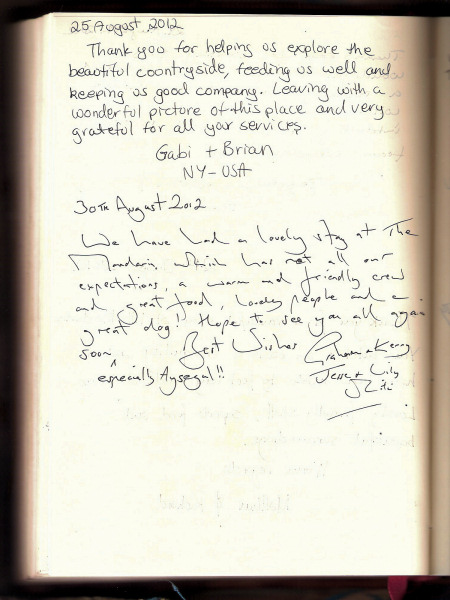 25 August 2012
Thank you for helping us explore the
beautiful countryside, feeding us well and
keeping us good company. Leaving with a
wonderful picture of this place and very
grateful for all your services.
Gabi + Brian
NY-USA
30th August 2012
We have had a lovely stay at The
which has met all our
expectations, a warm and friendly crew
and great food, lovely people and a
great dog! Hope to see you all again
soon Best Wishes Graham & Kerry
^ especially Aysegul!! Jesse & Lily